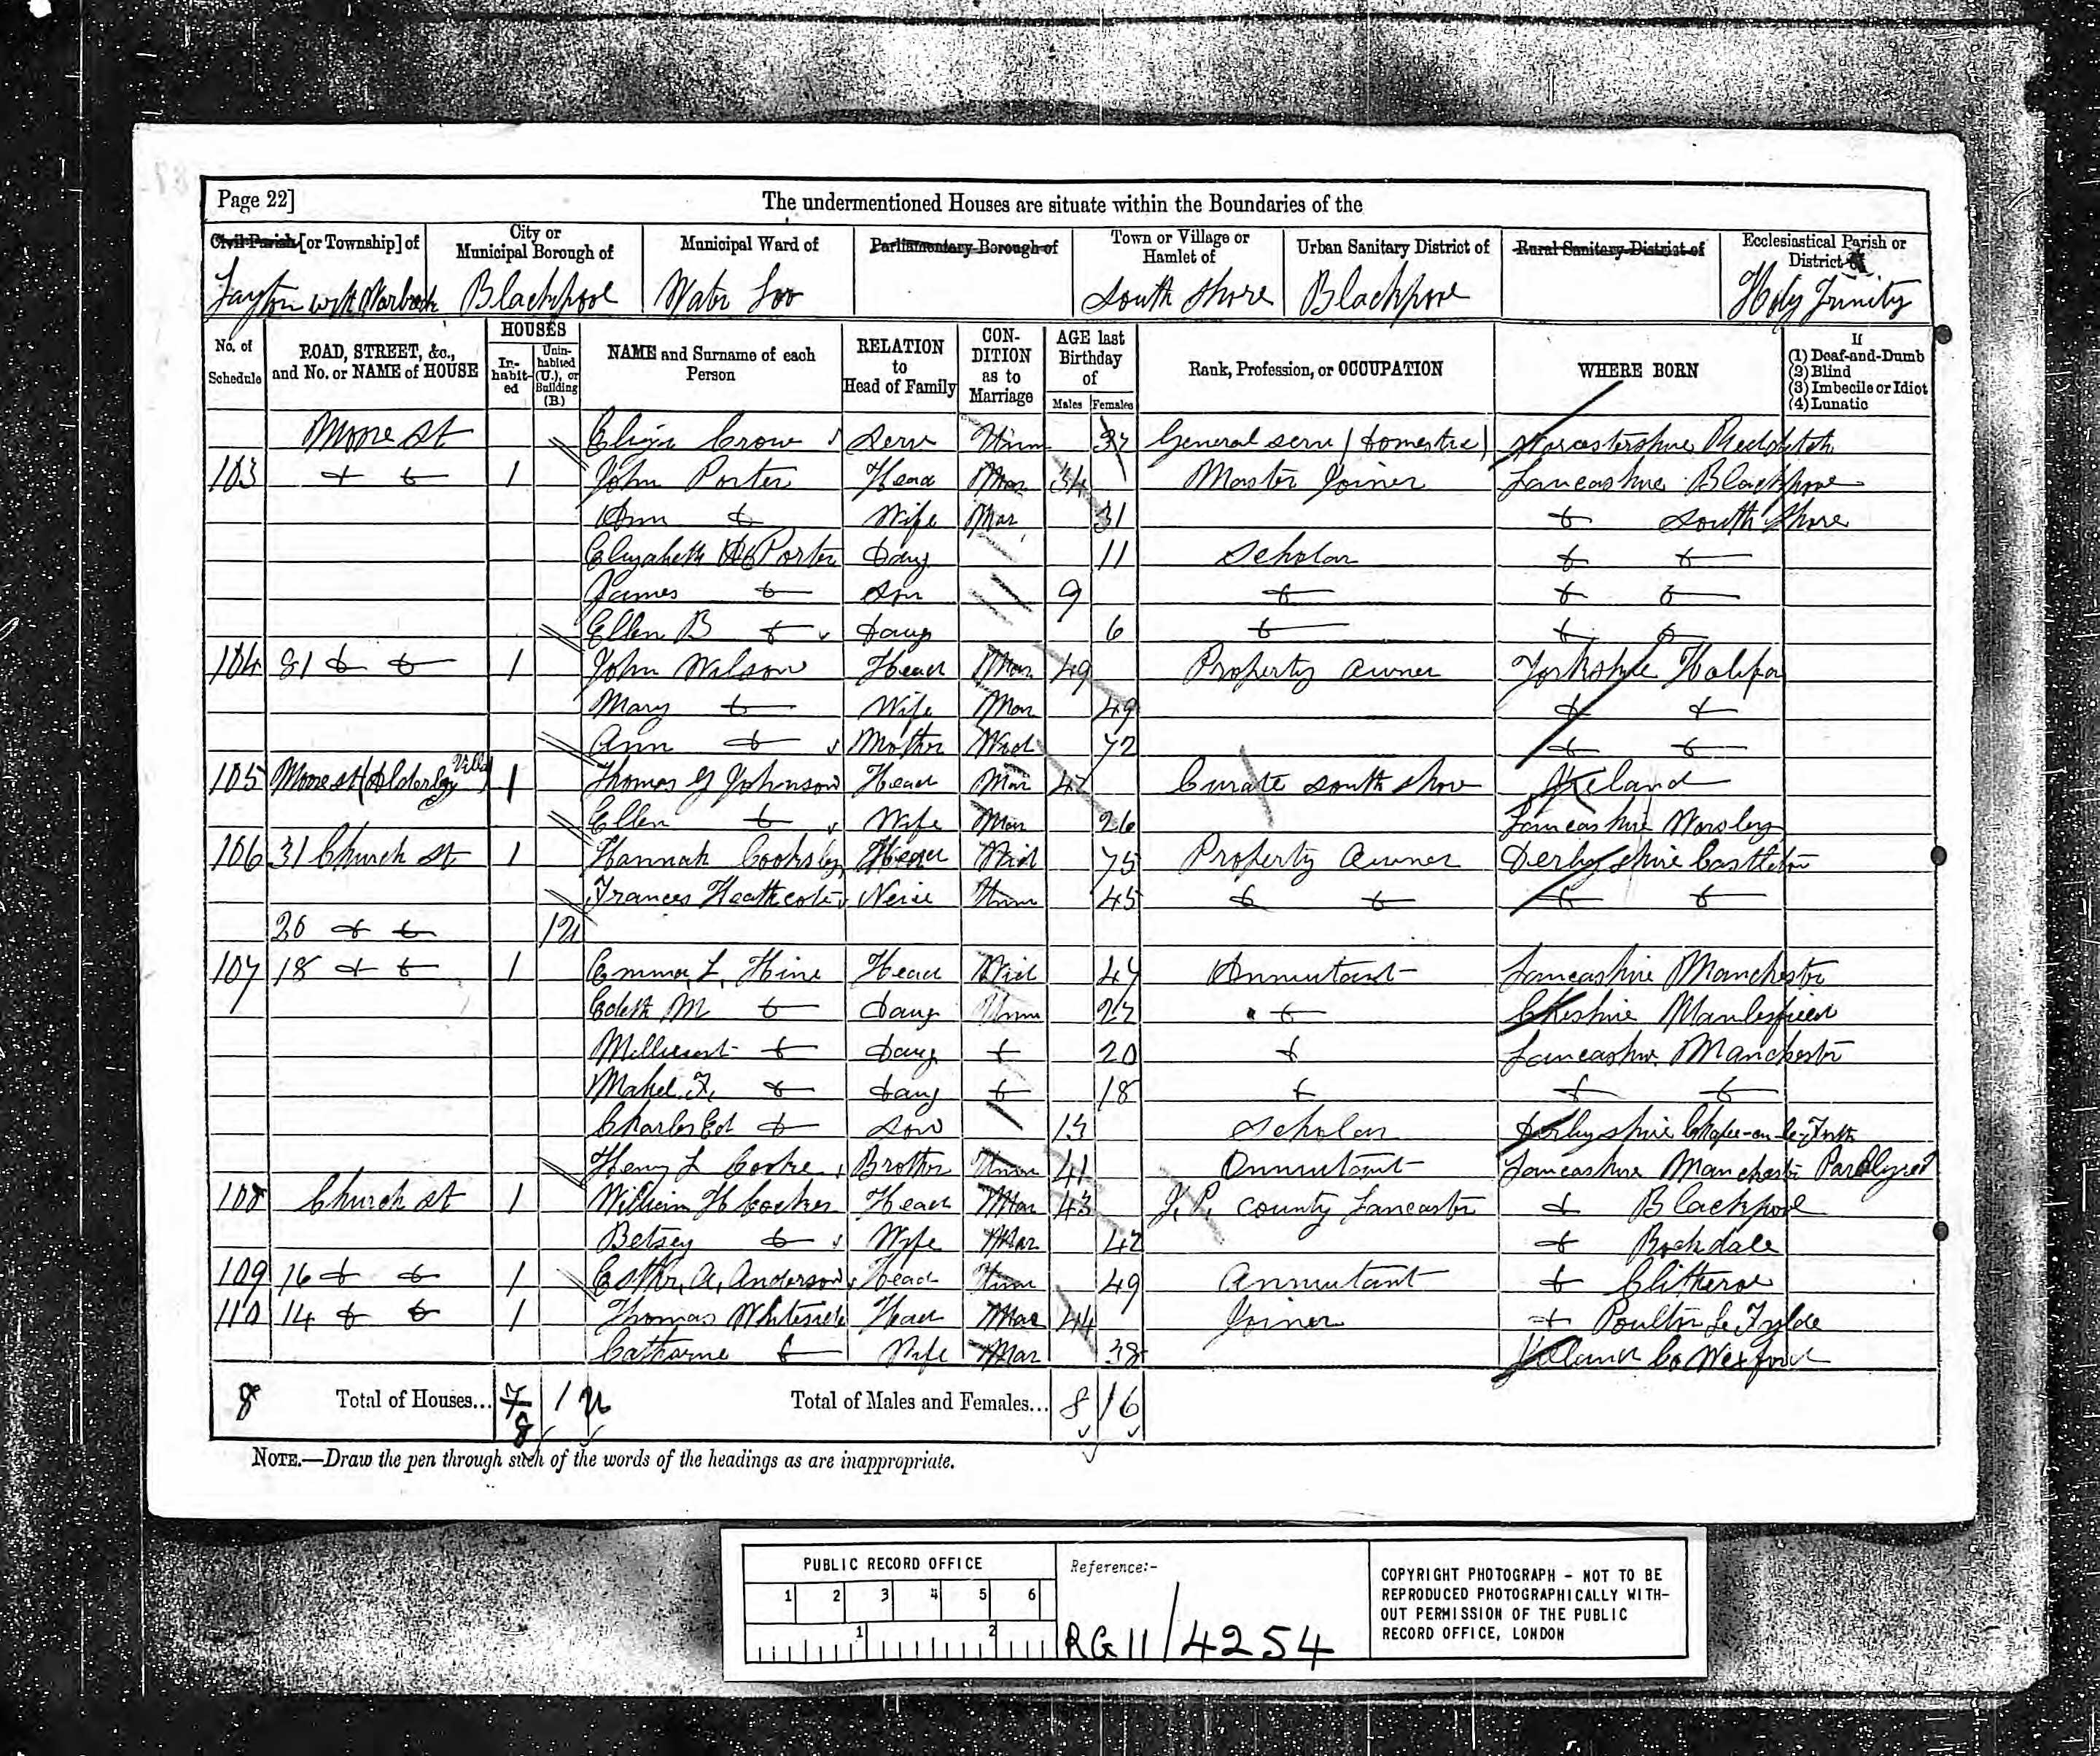 Page 22]
The undermentioned Houses are situate within the Boundaries of the
Civil Parish [or Township] of
City or Municipal Borough of
Municipal Ward of
Parliamentary Borough of
Town or Village or Hamlet of
Urban Sanitary District of
Rural Sanitary District of
Ecclesiastical Parish or District of
Layton with Warbrick Blackpool Water Loo South Shore Blackpool Holy Trinity
No. of Schedule
ROAD, STREET, &c., and No. or NAME of HOUSE
HOUSES
In-habit-ed
Unin-habited (U.), or Building (B.)
NAME and Surname of each Person
RELATION to Head of Family
CON-DITION as to Marriage
AGE last Birthday of
Males Females
Rank, Profession, or OCCUPATION
WHERE BORN
If
(1) Deaf-and-Dumb
(2) Blind
(3) Imbecile or Idiot
(4) Lunatic
Moore St Eliza Crow Serv Unm General serv (domestic) Worcestershire Redditch
103 1 John Porter Head Mar 34 Master Joiner Lancashire Blackpool
Ann Wife Mar 31 South Shore
Elizabeth Porter Daug 11 Scholar
James Son 9
Ellen B Daug 6
104 81 1 John Wilson Head Mar 49 Property Owner Yorkshire Halifax
Mary Wife Mar 49
Ann Mother Wid 72
105 Moore st (Alderley Villa) 1 Thomas G Johnson Head Mar Curate South Shore Ireland
Ellen Wife Mar 26 Lancashire Worsley
106 31 Church St 1 Hannah Cooksley Head Wid 75 Property Owner Derbyshire Castleton
Frances Heathcote Neice Unm 45
20 1 U
107 18 1 Emma L. Hine Head Wid 47 Annuitant Lancashire Manchester
Edith M Daug Unm Cheshire
Millicent Daug 20 Lancashire Manchester
Mabel F. Daug 18
Charles Ed Son 13 Scholar Derbyshire
Henry L Cooke Brother Unm 41 Annuitant Lancashire Manchester Paralysed
108 Church St 1 William H Cocker Head Mar 43 J. P. County Lancaster Blackpool
Betsey Wife Mar 42 Rochdale
109 16 1 Esther, A, Anderson Head Unm 49 Annuitant Clitheroe
110 14 1 Thomas Whiteside Head Mar 44 Joiner Poulton le Fylde
Catharine Wife Mar 38 Ireland Co Wexford
8 Total of Houses... 7 8 1 U Total of Males and Females... 8 16
NOTE.—Draw the pen through such of the words of the headings as are inappropriate.
PUBLIC RECORD OFFICE
1 2 3 4 5 6
1 2
Reference:-
RG 11/4254
COPYRIGHT PHOTOGRAPH - NOT TO BE
REPRODUCED PHOTOGRAPHICALLY WITH-
OUT PERMISSION OF THE PUBLIC
RECORD OFFICE, LONDON